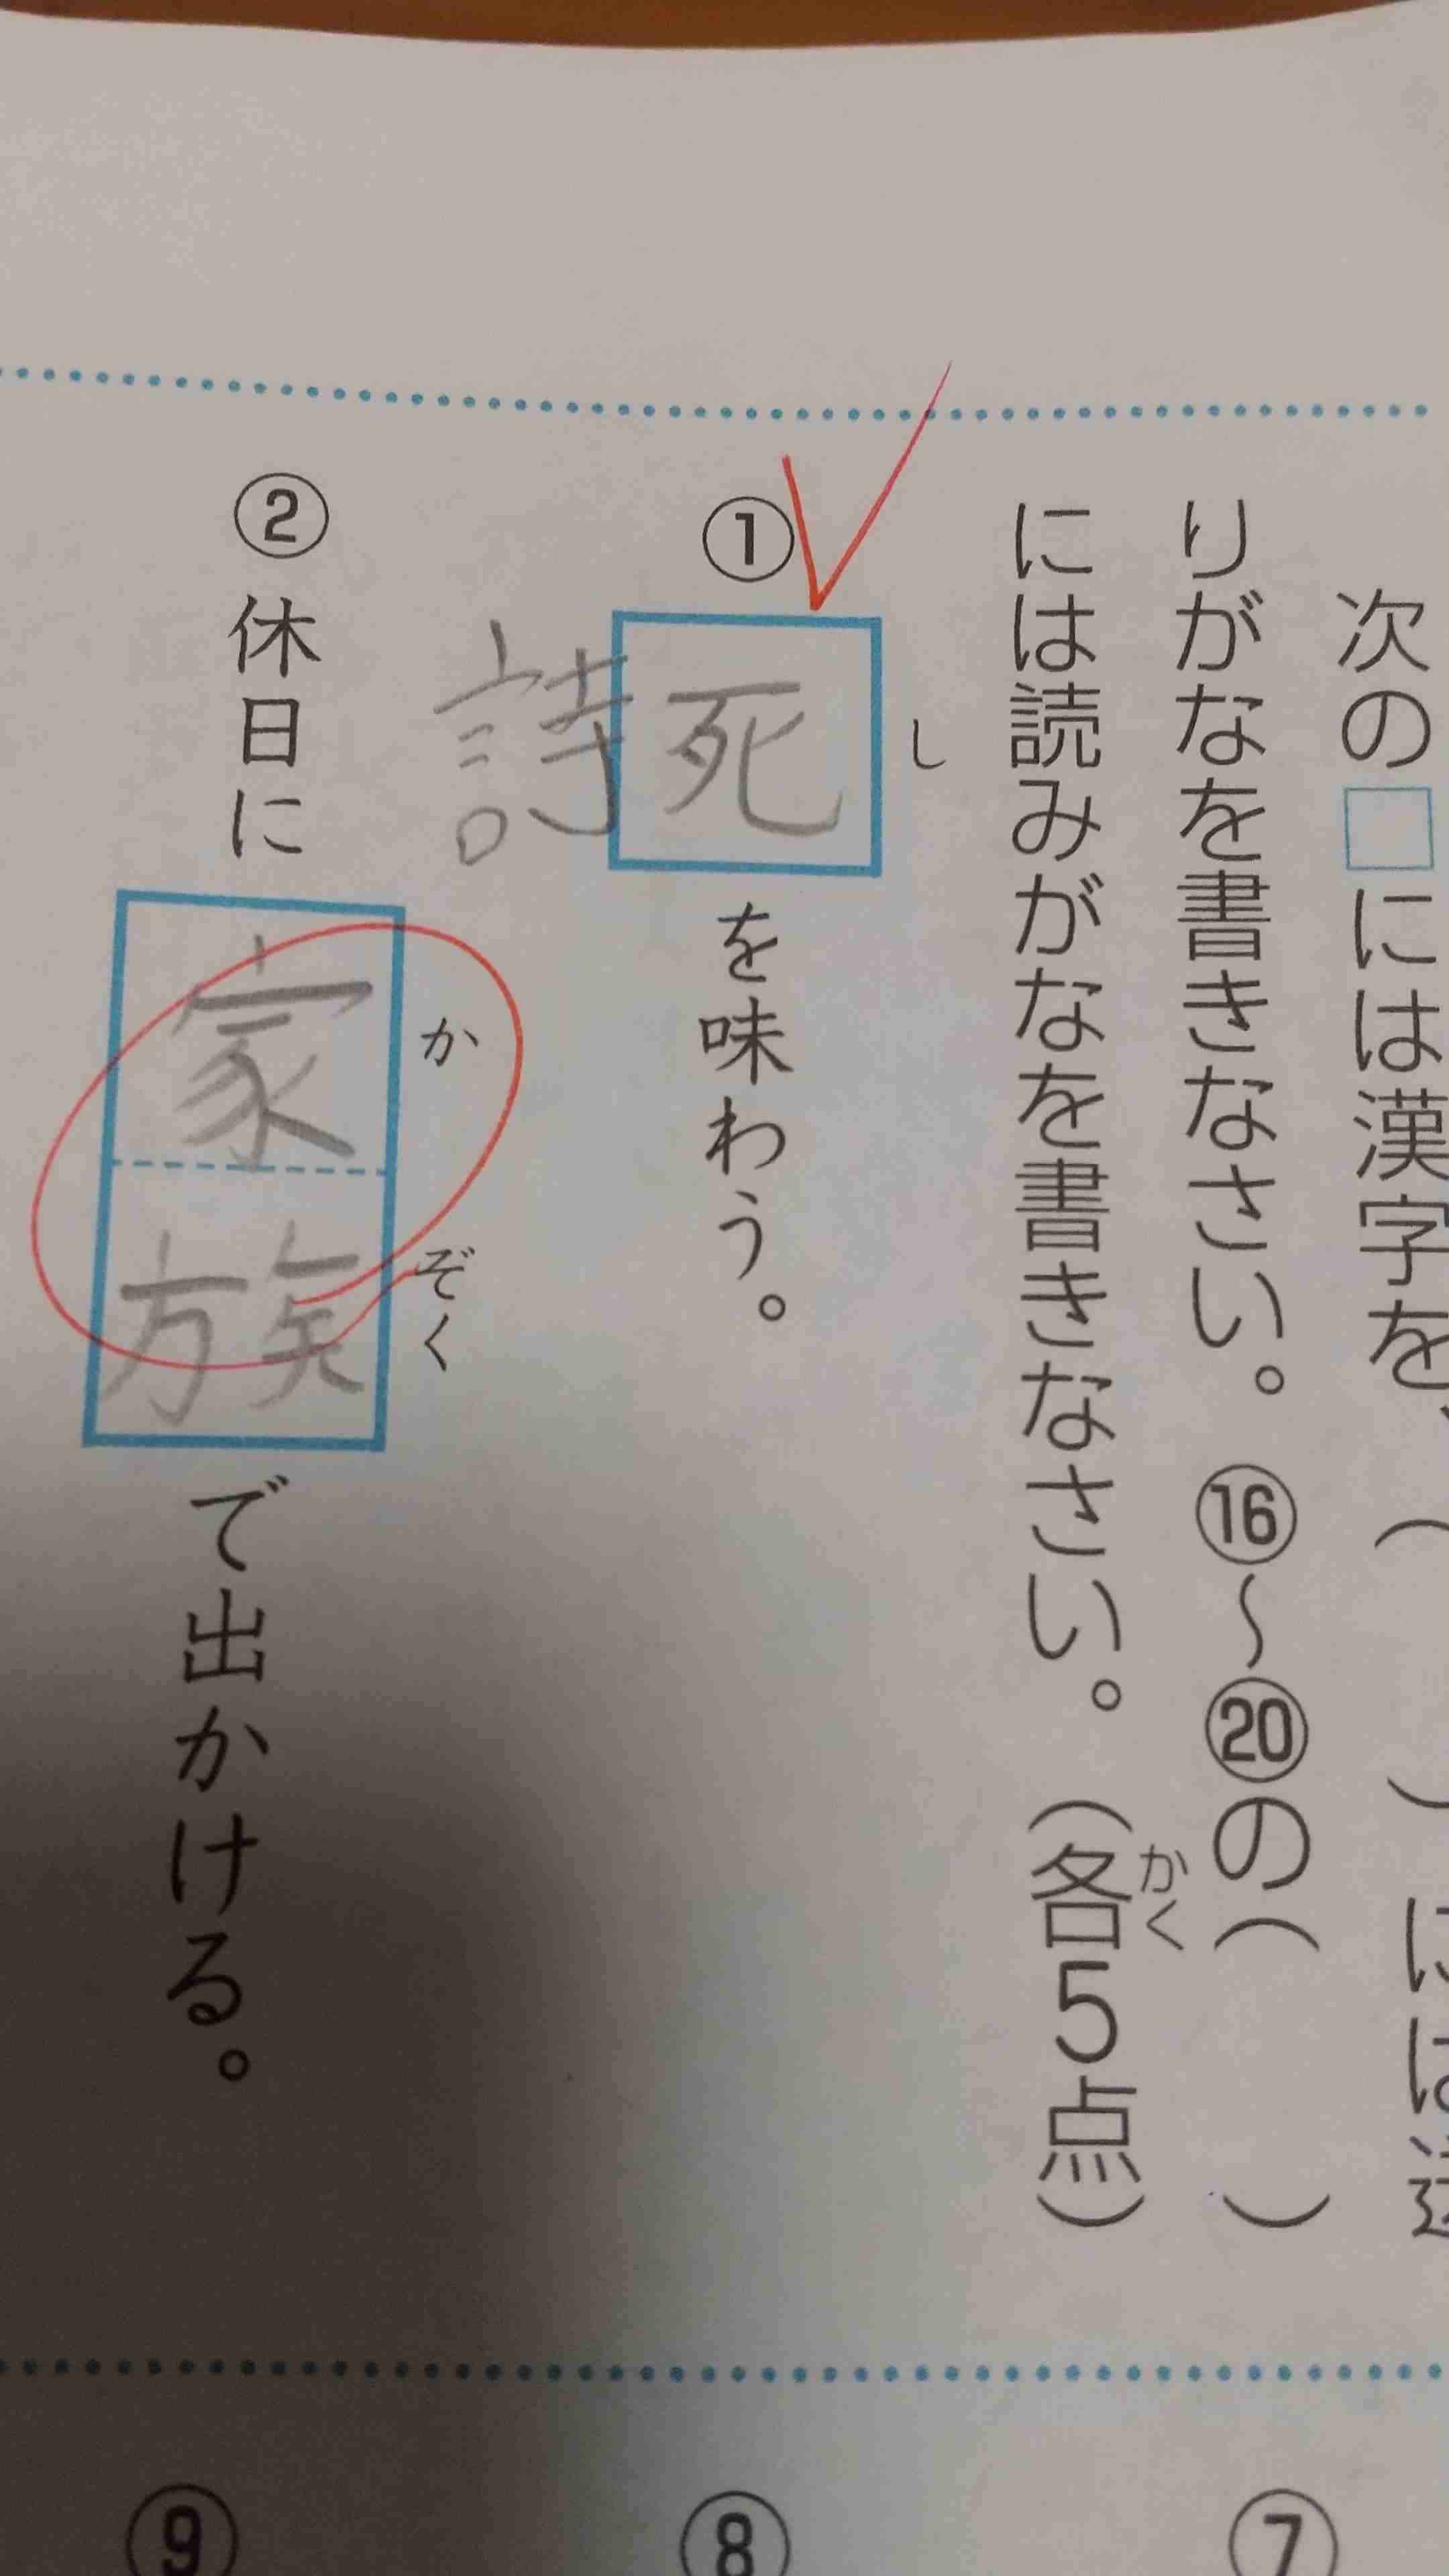 次の□には漢字を、(　　)には送
りがなを書きなさい。⑯～⑳の(　　)
には読みがなを書きなさい。(各5点)
かく
① 死を味わう。
し
詩
② 休日に家族で出かける。
かぞく
⑦
⑧
⑨